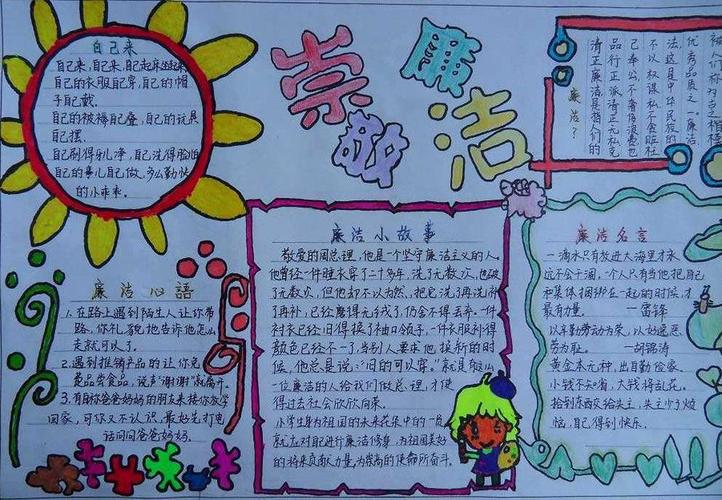 崇敬廉洁
自己来
自己来,自己来,自己起床坐起来
自己的衣服自己穿,自己的帽
子自己戴.
自己的被褥自己叠,自己的玩具
自己摆.
自己刷得牙儿净,自己洗得脸怕
自己的事儿自己做,多么勤快
的小乖乖.
廉洁?
优秀品质之一廉洁
法这是中华民族的
不以权谋私不贪赃枉
己奉公不奢侈浪费也
品行正派清正无私克
清正廉洁是指人们的
廉洁心語
1.在路上遇到陌生人让你带
路,你礼貌地告诉他怎么
走就可以了.
2.遇到推销产品的让你免
费品尝食品,说声"谢谢"就离开.
3.有自称爸爸妈妈的朋友来接你放学
回家,可你又不认识,最好先打电
话问问爸爸妈妈.
廉洁小故事
敬爱的周总理,他是一个坚守廉洁主义的人.
他曾经一件睡衣穿了二十多年,洗了无数次,也破
了无数次,但他却不以为然,把它洗了再洗,补
了再补,已经磨得无绒了,仍舍不得丢弃.一件
衬衣已经旧得换了袖口领子,一件衣服利得
颜色已经不一了,当别人要求他换新的时
候,他总是说:"旧的可以穿。"就是
一位廉洁的人给我们做总理,才使
得过去社会欣欣向荣.
小学生身为祖国的未来花朵中的一
就应对自己进行廉洁修身,为祖国美好
的将来贡献力量,为崇高的使命所奋斗。
廉洁名言
一滴水只有放进大海里才永
远不会干涸,一个人只有当他把自己
和集体捆绑在一起的时候,才
最有力量. 雷锋
以辛勤劳动为荣,以好逸恶
劳为耻. 胡锦涛
黄金本无种,出自勤俭家.
小钱不知省,大钱将乱花.
拾到东西交给失主,失主少了烦
恼,自己得到快乐.